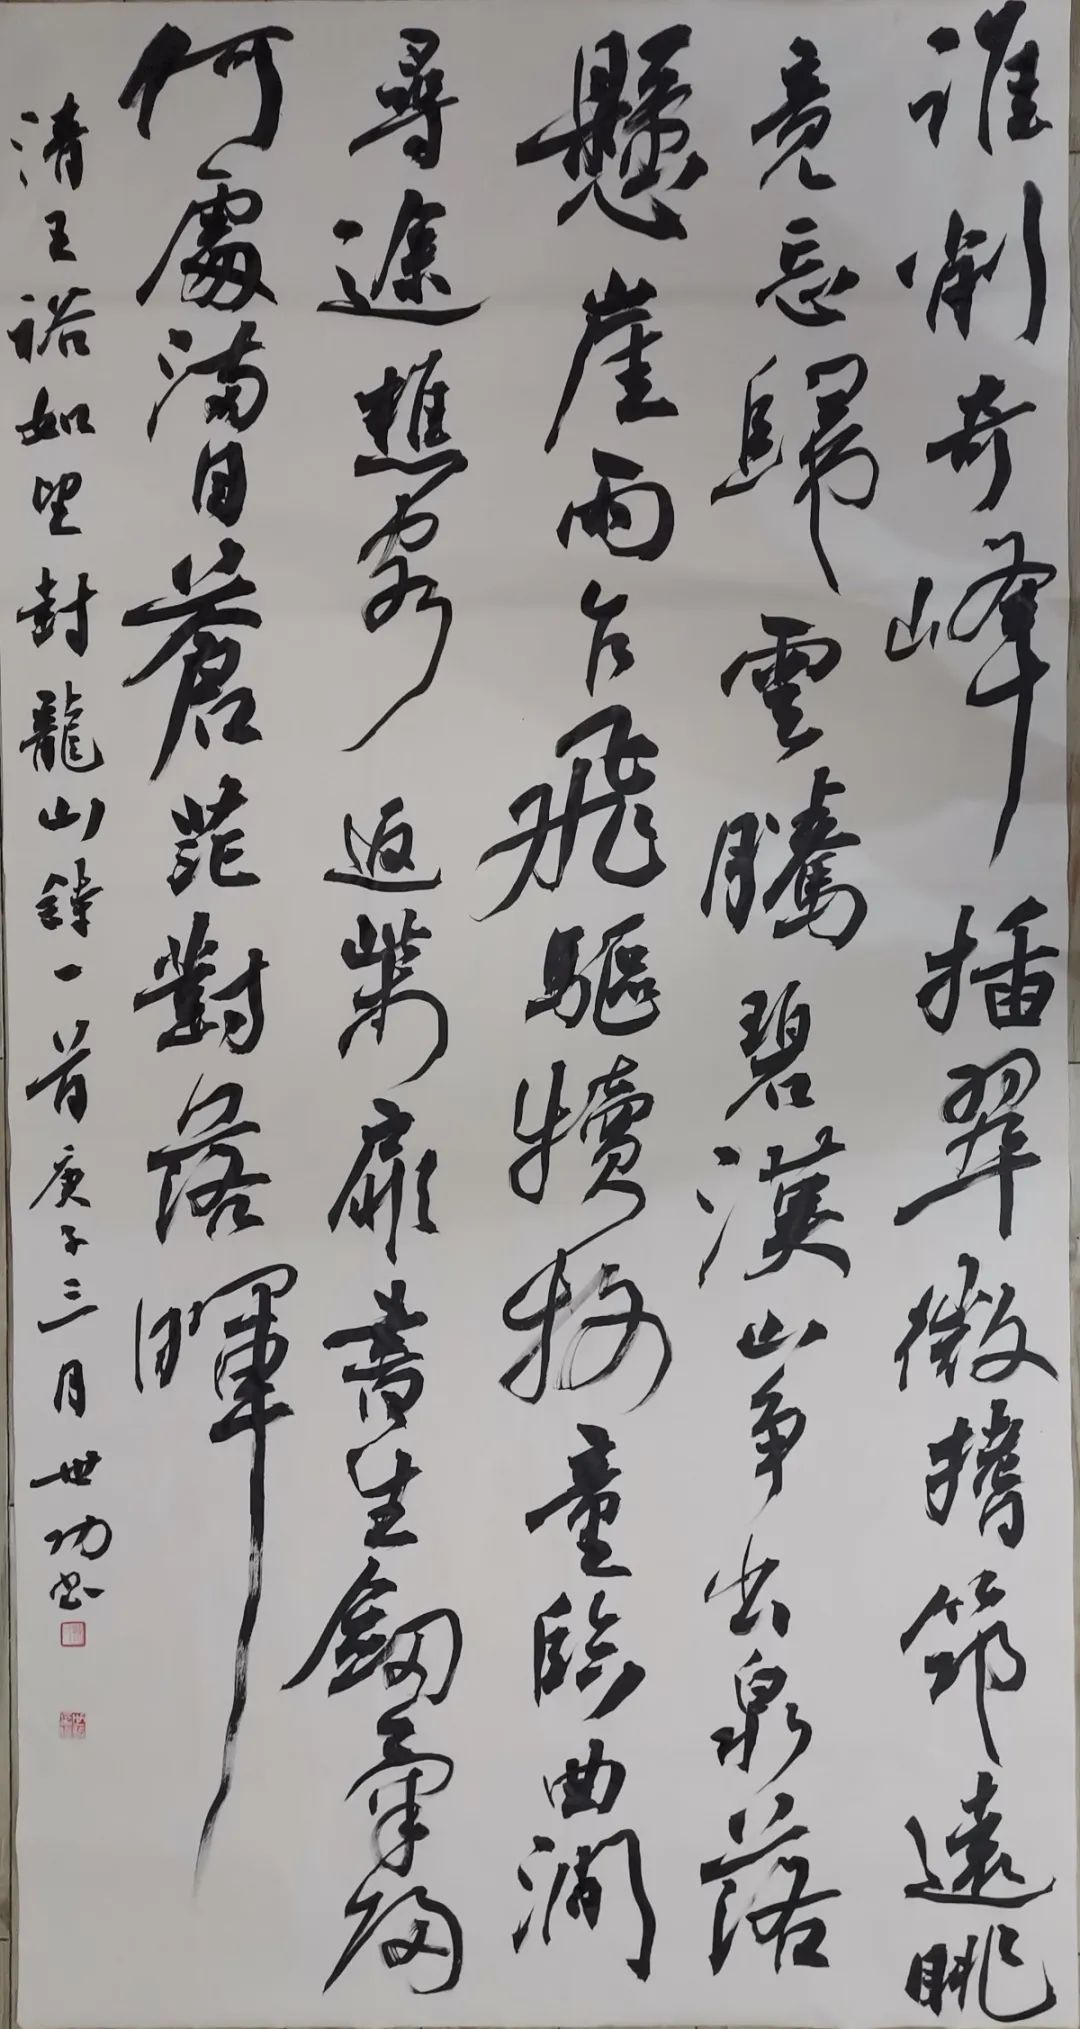 誰削奇峰插翠微搘筇遠眺
竟忘歸雲騰碧漢山爭出泉落
懸崖雨乍飛驅犢牧童臨曲澗
尋途樵客返柴扉生劍氣歸
何處滿目蒼茫對落暉
清王裕如望封龍山詩一首庚子三月世功書